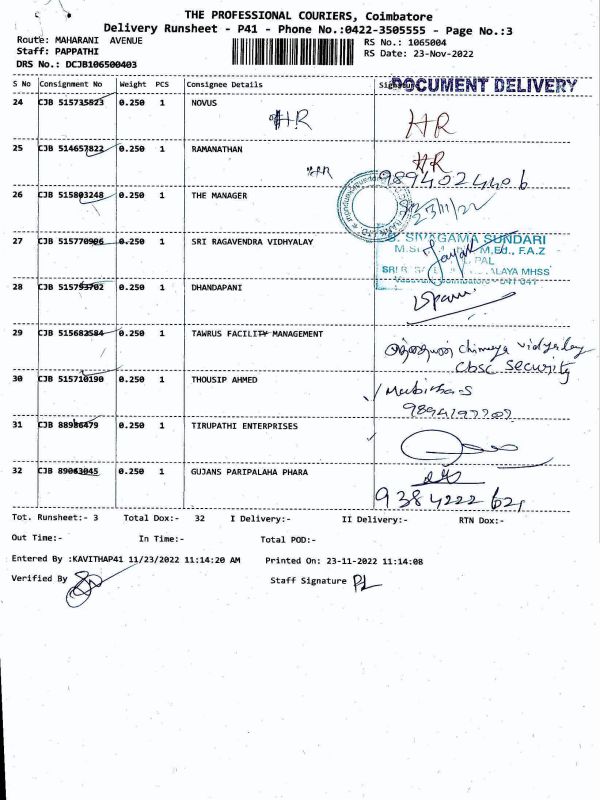 THE PROFESSIONAL COURIERS, Coimbatore
Delivery Runsheet - P41 - Phone No.:0422-3505555 - Page No.:3
Route: MAHARANI AVENUE RS No.: 1065004
Staff: PAPPATHI RS Date: 23-Nov-2022
DRS No.: DCJB106500403
S No Consignment No Weight PCS Consignee Details DOCUMENT DELIVERY
24 CJB 515735823 0.250 1 NOVUS
HR HR
25 CJB 514657822 0.250 1 RAMANATHAN HR
HR 9894024406
26 CJB 515803248 0.250 1 THE MANAGER
23/11/22
27 CJB 515770906 0.250 1 SRI RAGAVENDRA VIDHYALAY SIVAGAMA SUNDARI
M.Ed., F.A.Z
ALAYA MHSS
28 CJB 515793702 0.250 1 DHANDAPANI
29 CJB 515682584 0.250 1 TAWRUS FACILITY MANAGEMENT
CBSC Security
30 CJB 515710190 0.250 1 THOUSIP AHMED
31 CJB 88986479 0.250 1 TIRUPATHI ENTERPRISES
32 CJB 89063045 0.250 1 GUJANS PARIPALAHA PHARA
Tot. Runsheet:- 3 Total Dox:- 32 I Delivery:- II Delivery:- RTN Dox:-
Out Time:- In Time:- Total POD:-
Entered By :KAVITHAP41 11/23/2022 11:14:20 AM Printed On: 23-11-2022 11:14:08
Verified By Staff Signature